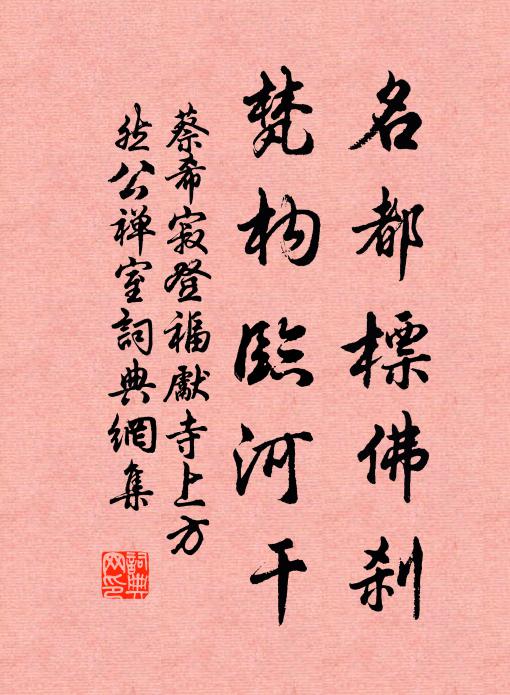 名都標佛刹
梵构臨河干
蔡希寂登福獻寺上方
然公禅室詞典網集
詞典
网印